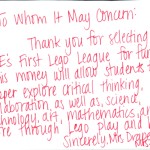 To Whom It May Concern:
Thank you for selecting
E's First Lego League for fun
is money will allow students t
eper explore critical thinking,
laboration, as well as, science,
hnology, art, mathematics, a
re through Lego play and
Sincerely, Mrs.